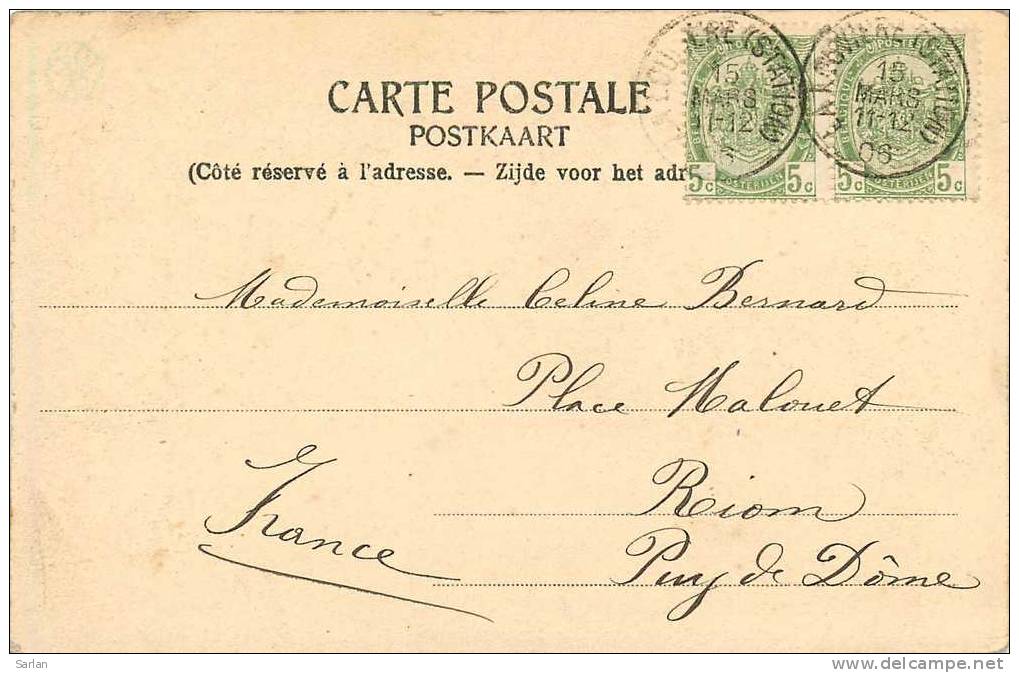 CARTE POSTALE
POSTKAART
(Côté réservé à l'adresse. — Zijde voor het adr
LA LOUVIERE (STATION)
15
MARS
11-12
06
5c 5c 5c 5c
Mademoiselle Celine Bernard
Place Malouet
Riom
France
Puy de Dôme
Sarlan
www.delcampe.net